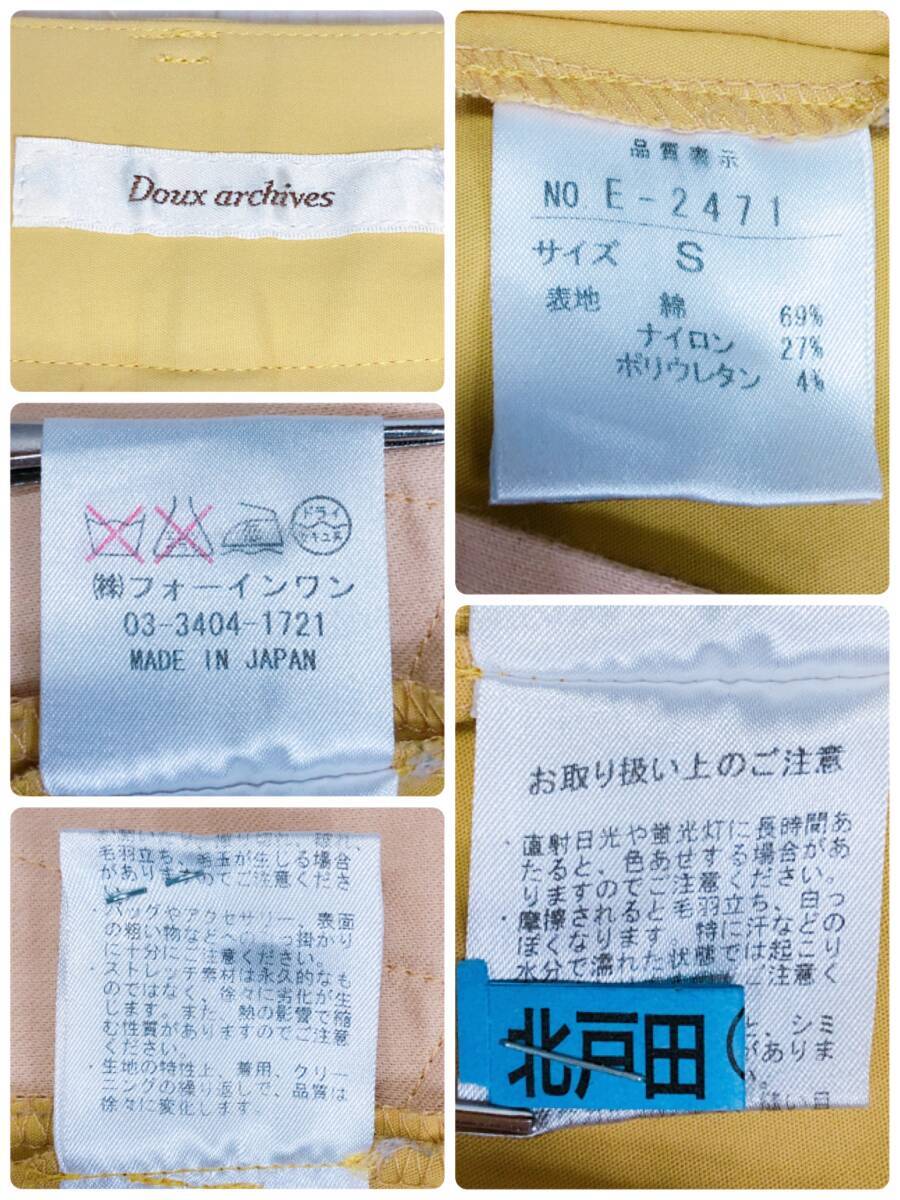 Doux archives
品質表示
NO E-2471
サイズ S
表地 綿 69%
ナイロン 27%
ポリウレタン 4%
ドライ
セキユ系
㈱フォーインワン
03-3404-1721
MADE IN JAPAN
お取り扱い上のご注意
・直射日光や蛍光灯に長時間あ
たると、色あせする場合があ
りますのでご注意ください。
・摩擦されると毛羽立ち、白っ
ぽくなります。特に汗などの
水分で濡れた状態では起こり
ご注意く
北戸田
、シミ
がありま
。
縫い目
毛羽立ち、毛玉が生じる場合
がありますのでご注意くださ
い。
・バッグやアクセサリー、表面
の粗い物などへの引っ掛かり
に十分にご注意ください。
・ストレッチ素材は永久的なも
のではなく、徐々に劣化が生
じます。また、熱の影響で縮
む性質がありますのでご注意
ください。
・生地の特性上、着用、クリー
ニングの繰り返しで、品質は
徐々に変化します。